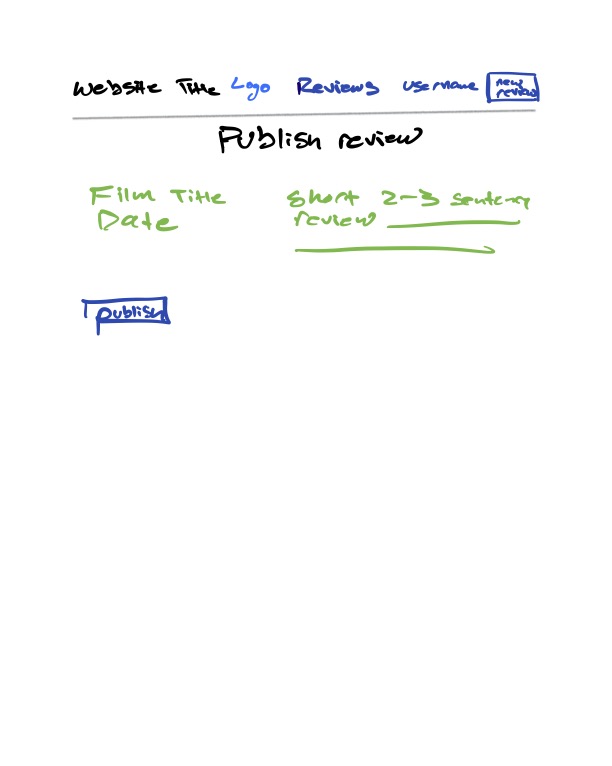 Website Title Logo Reviews username new review
Publish review
Film Title
Date
Short 2-3 sentence
review
publish